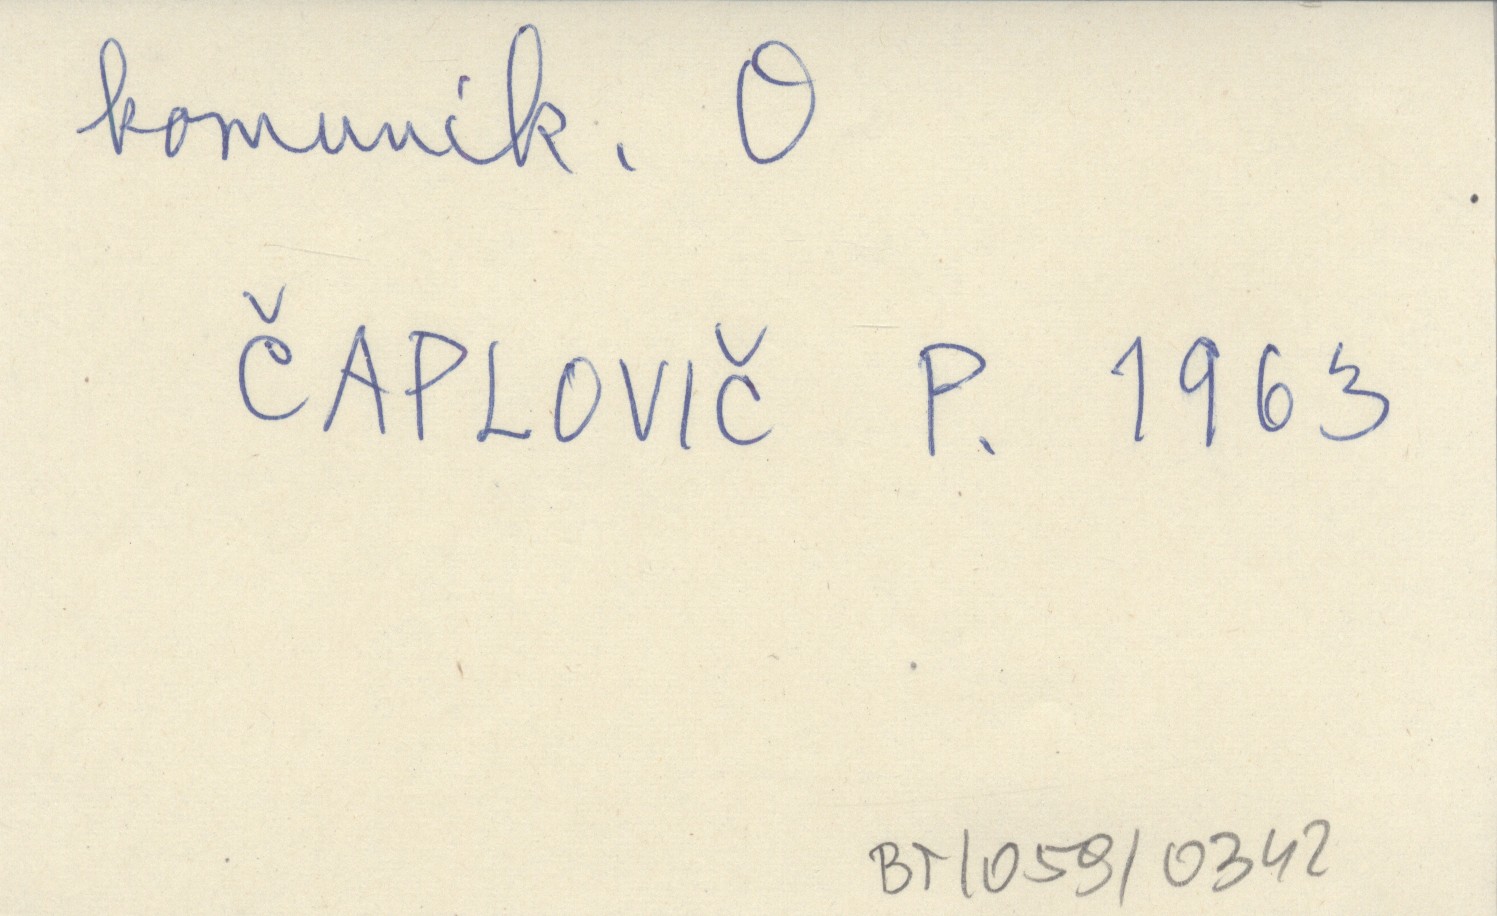 komunik. O
ČAPLOVIČ P. 1963
BT/059/0342